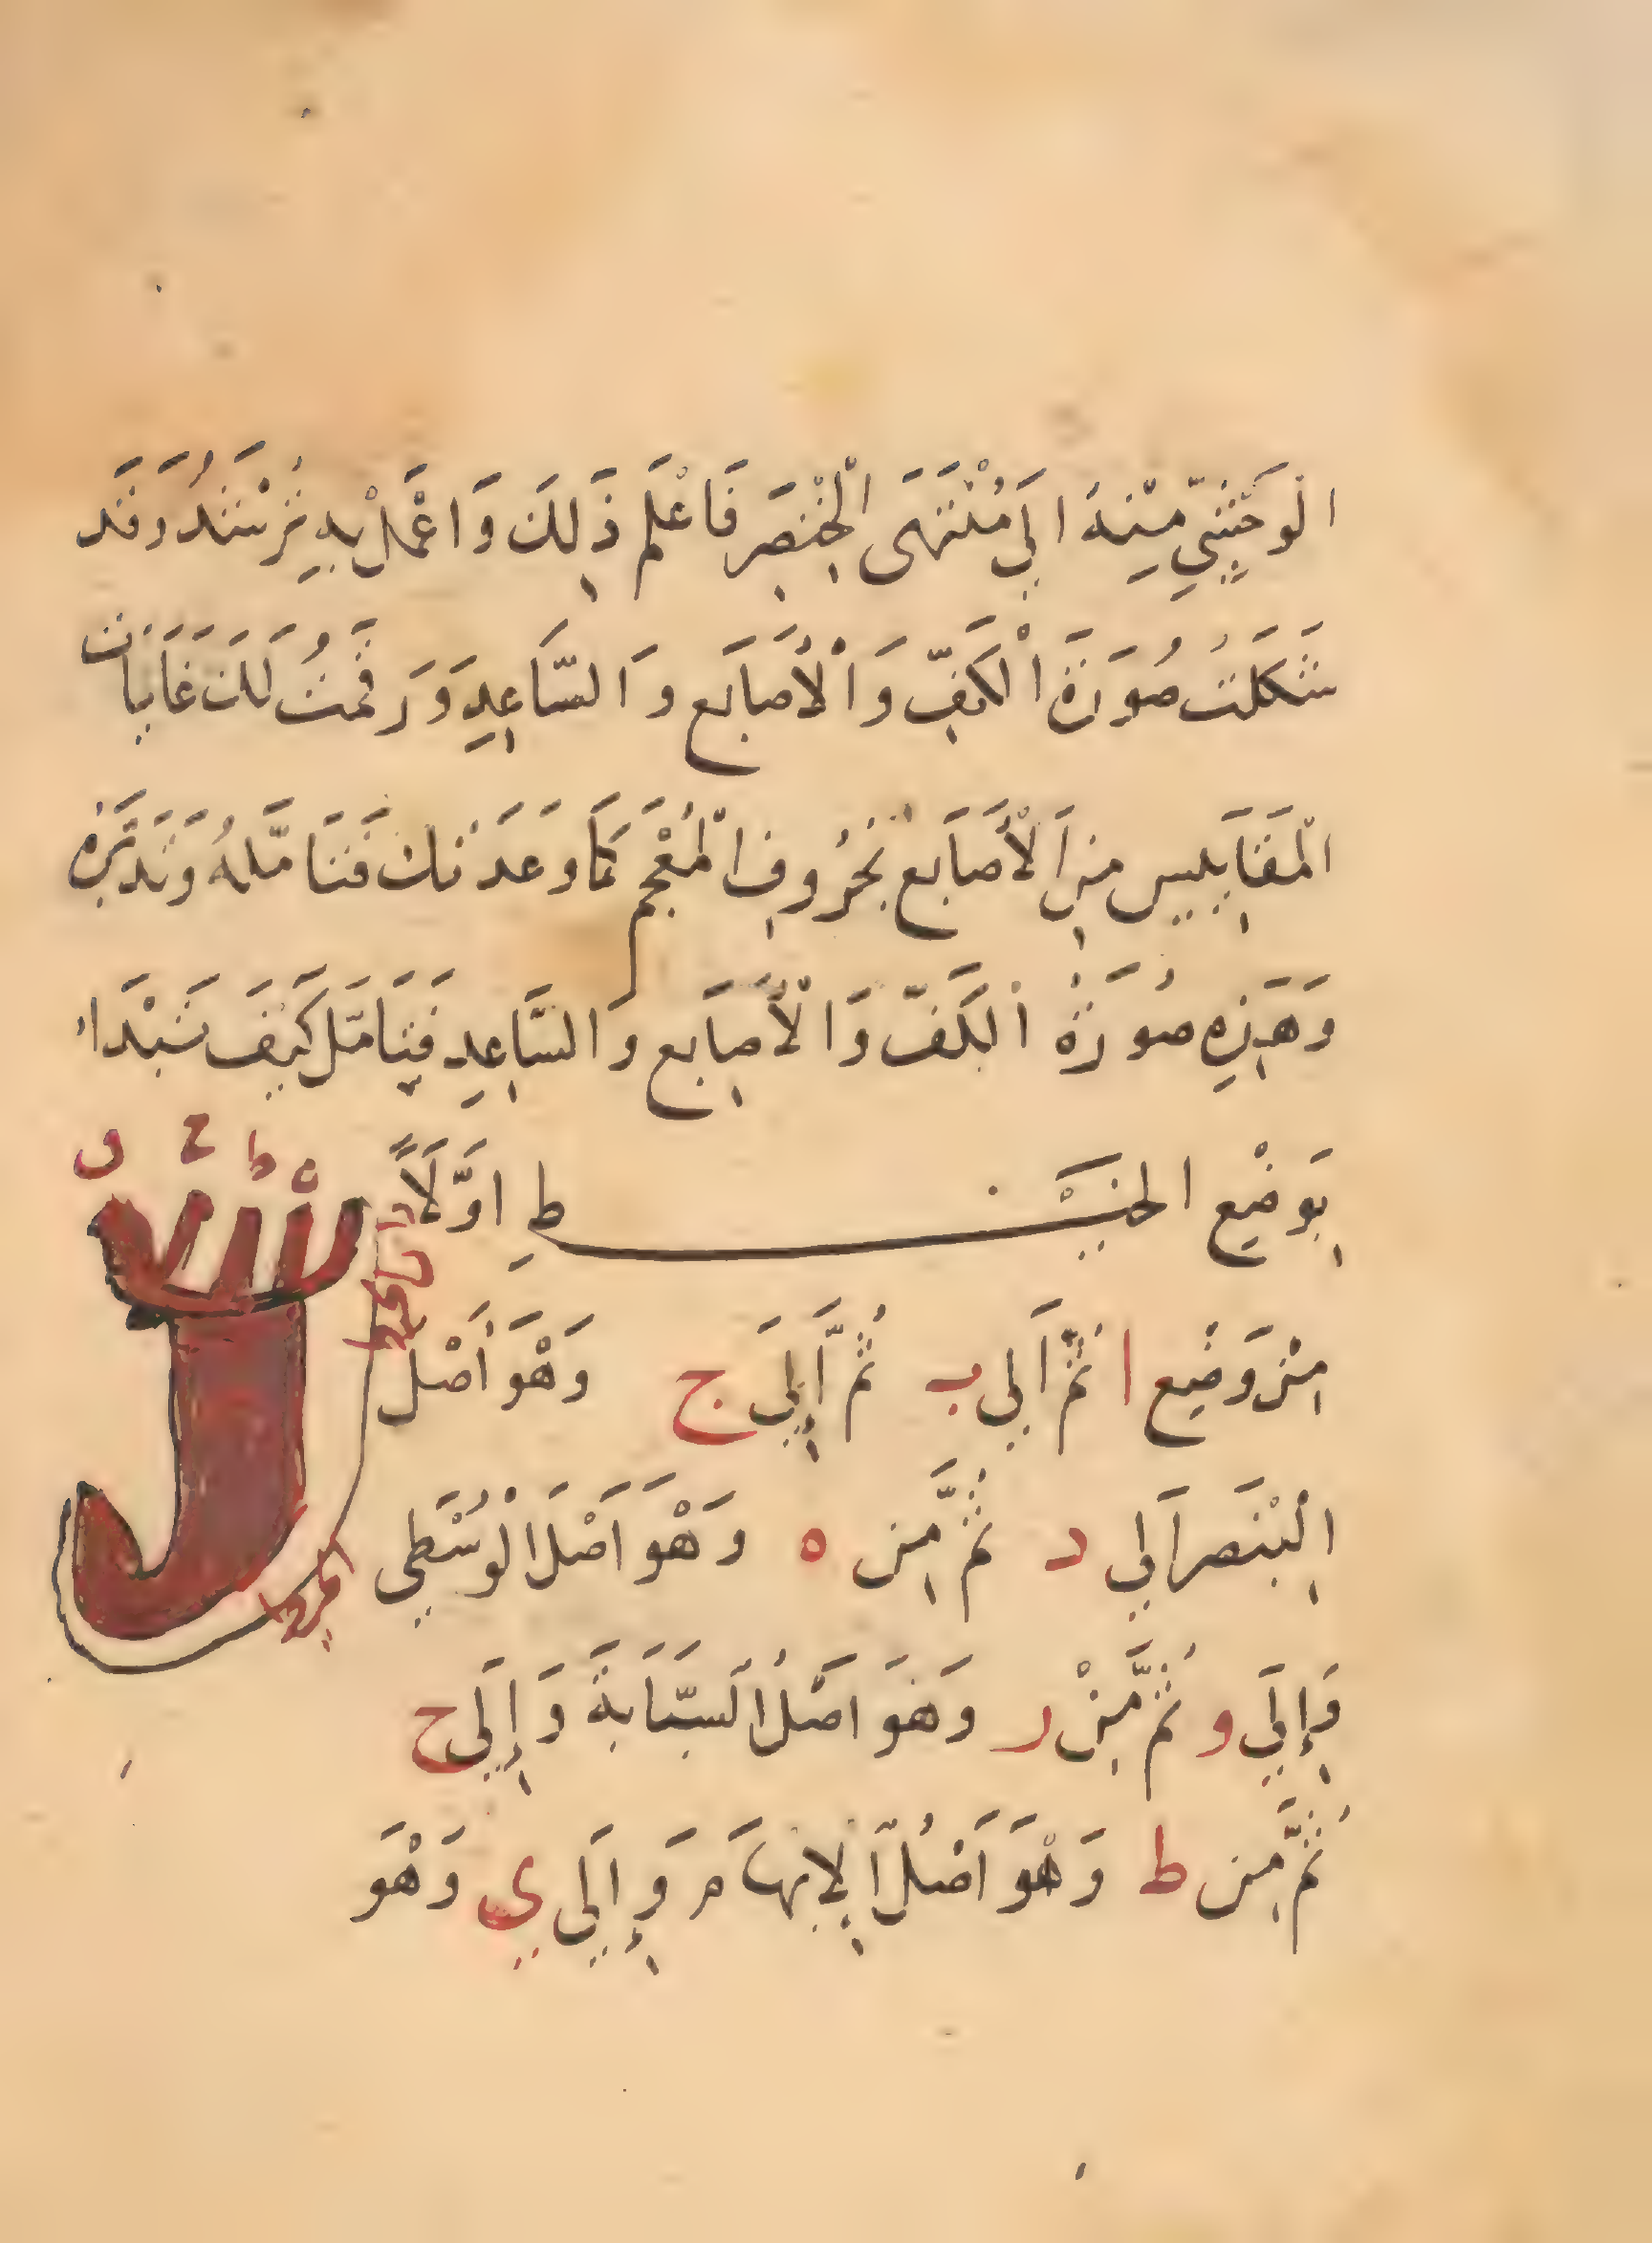 الْوَحْشِيِّ مِنْهُ اِلَي مُنْتَهَى الْخِنْصَرِ فَاعْلَم ذَلِكَ وَاعْمَلْ بِهِ تَرْشُدُ وَقَد
شَكَلتُ صُورَةَ الْكَفِّ وَالْأَصَابَع وَالسَّاعِدِ وَرَقَمتُ لَكَ غَايَات
الْمَقَابِيس مِنَ الْأَصَابَع بحُرُوفِ الْمُعْجَم كَمَا وَعَدَتكَ فَتَامَّلهُ وَتَدَبَّرْهُ
وَهَذِهِ صُورَةُ الكَفّ وَالْأَصَابَع وَالسَّاعِدِ فَتَامَّل كَيْفَ تَبْدَاُ
بِوَضْعِ الخَيْطِ اَوَّلاً
مِنْ وَضع ا ثُمَّ اَلي ب ثُمَّ اِلَيَ ج وَهْوَ أَصْل
الِبْنصَر اَلي د ثُمَّ مِن ه وَهْوَ اَصْلَ الْوُسْطَي
وَإِلَي و ثُمَّ مِنْ ر وَهْوَ اَصْلُ السَبَّابَة وَإِلَي ح
ثُمَّ مِن ط وَهْوَ اَصْلُ الِابهَام وَإِلَي ي وَهْوَ
و ح ط ه
الخيط